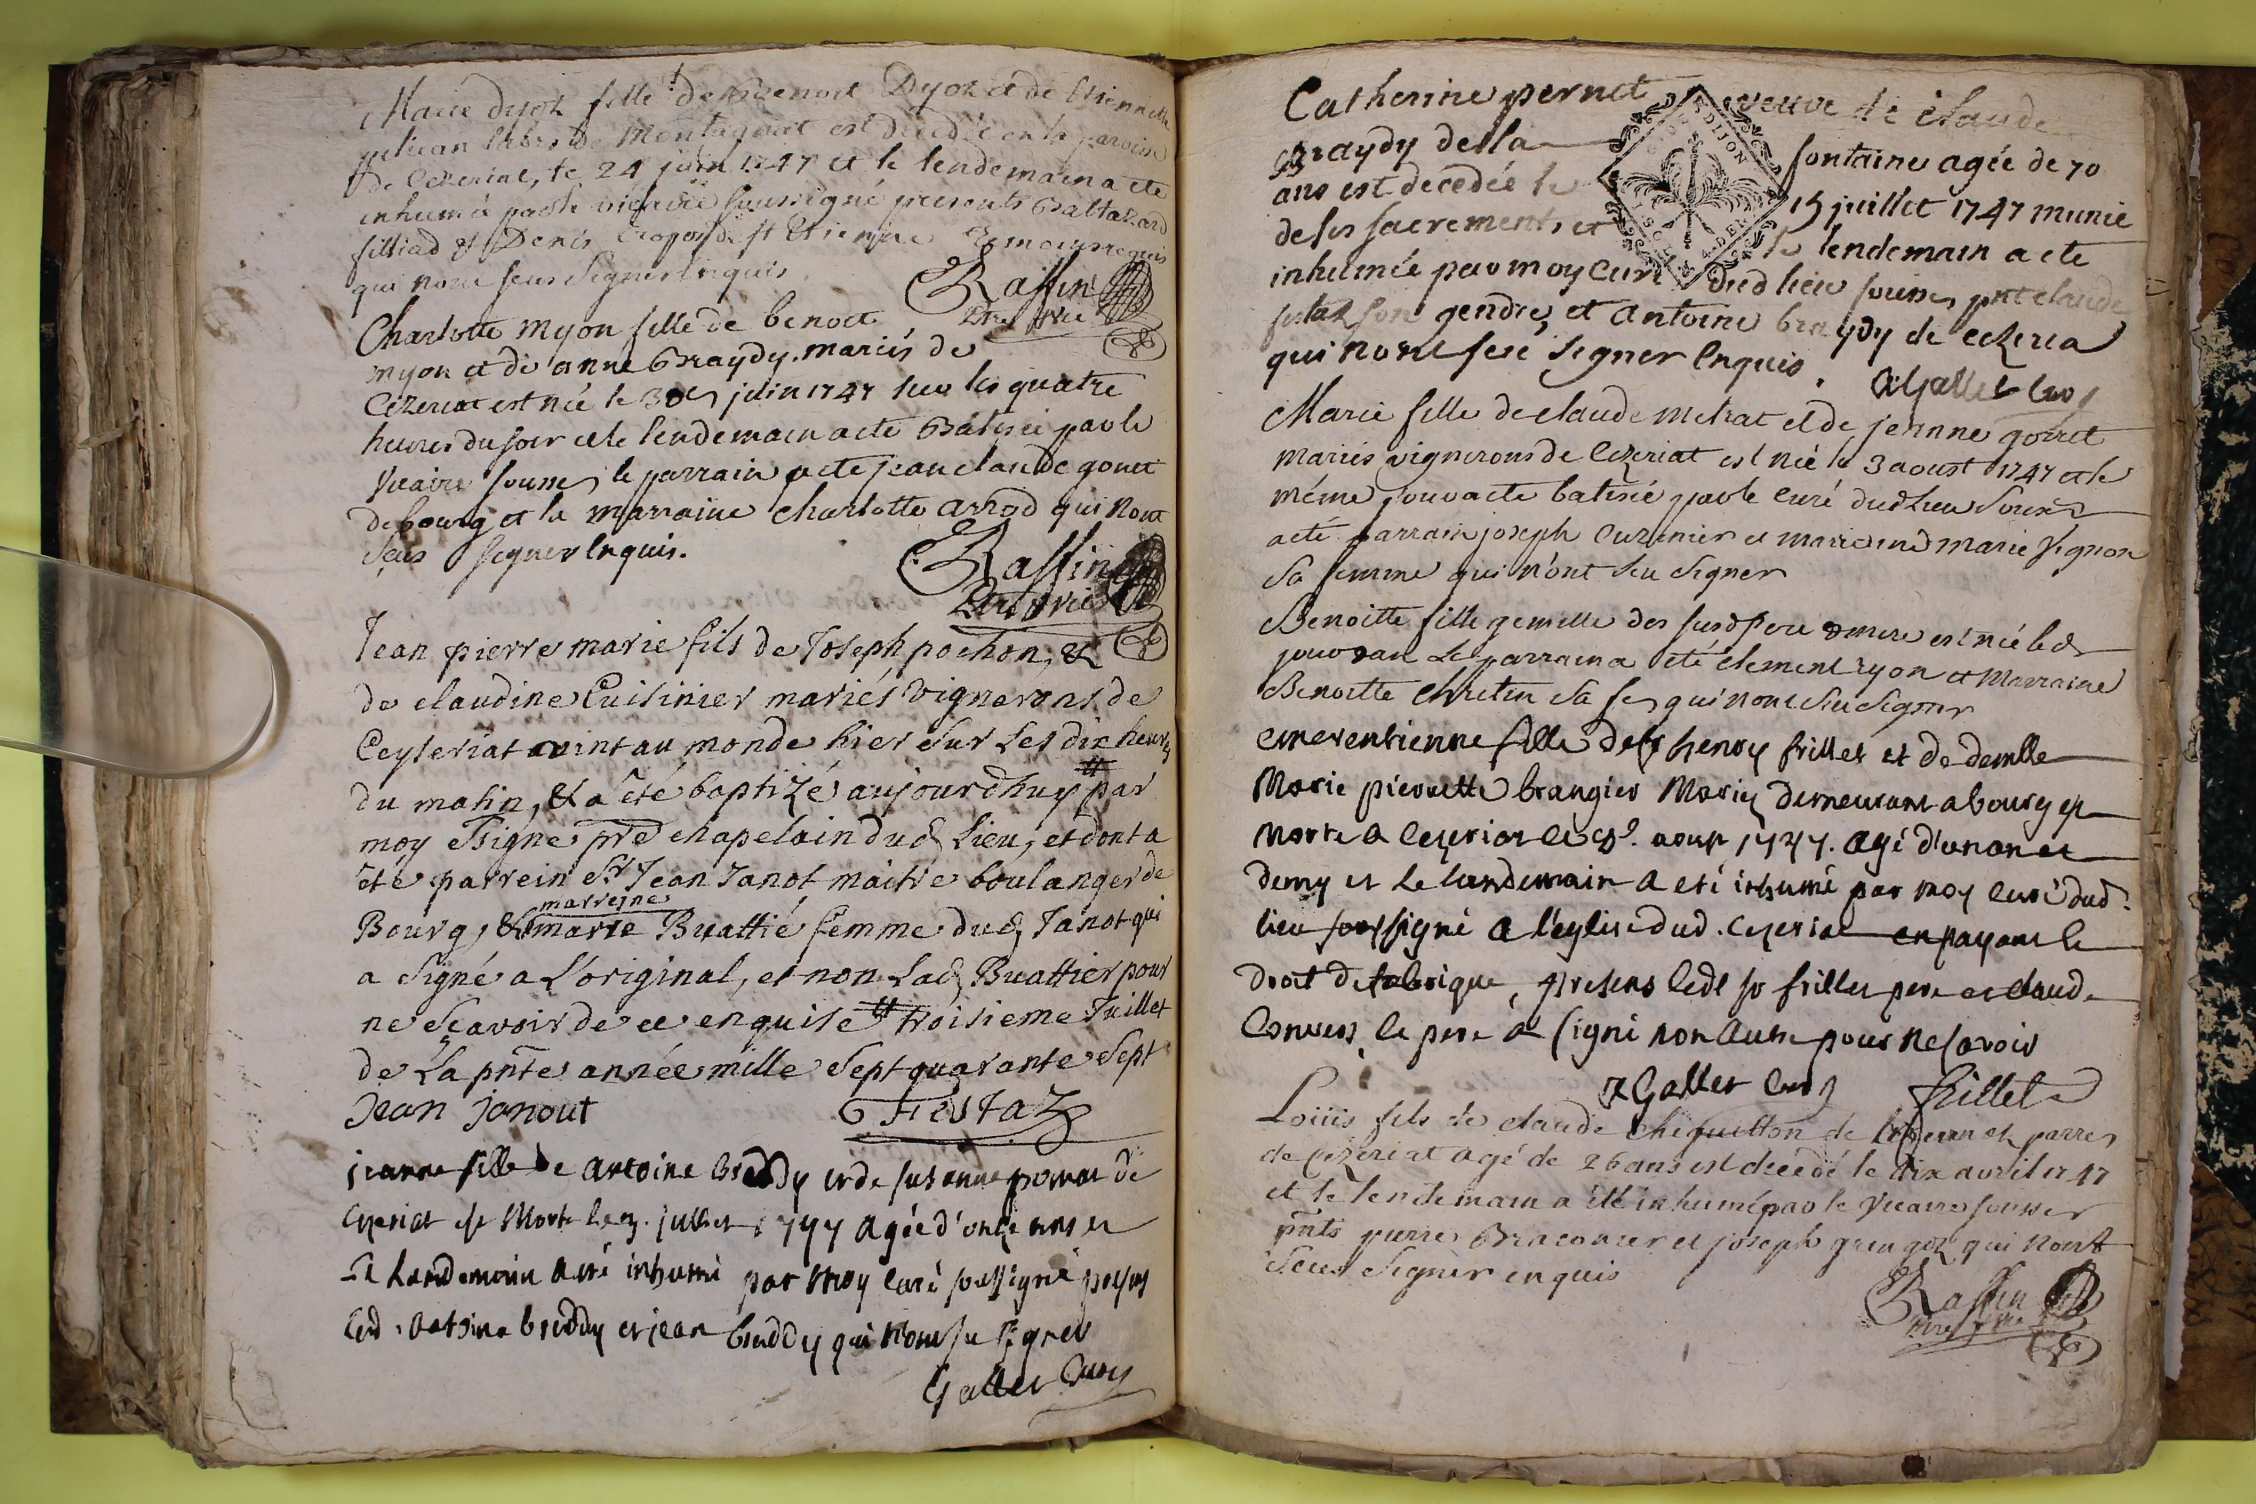 Marie dyoz fille de Benoit Dyoz et de Etiennette
de Montagnat est decedée en la paroisse
de Cezeriat, le 24 juin 1747 et le lendemain a ete
inhumée par le vicaire soussigné presents Baltazard
filliad & Denis de st Etienne
qui nont sceus signer enquis
Raffin
ptre vic
Charlotte myon fille de benoit
myon et de anne Braydy mariés de
Cezeriat est née le 30e juin 1747 sur les quatre
heures du soir et le lendemain a ete Batisée par le
vicaire soussne le parrain a ete jean claude gonet
de bourg et la marraine Charlotte arrod qui nont
sceus signer Enquis.
Raffin
ptre vic
Jean pierre marie fils de Joseph pochon, &
de claudine Cuisinier mariés vignerons de
Ceyseriat vint au monde hier sur Les dix heures
du matin, & a été baptizé aujourdhuy par
moy ssigné pre chapelain dud Lieu, et dont a
eté parrein sr Jean Janot maitre boulanger de
marreine
Bourg, & marie Buattié femme dud Janot qui
a signé a L'original, et non Lad Buattier pour
ne sçavoir de ce enquise troisieme Juillet
de La pnte année mille sept quarante sept
Jean janout
Festaz
jeanne fille de antoine breddy et de susanne de
Cezeriat est Morte le juillet 1747 agée d'onze ans et
le landemain a eté inhumé par moy curé soussigné presens
led. antoine breddy et jean breddy qui nont su signer
Gallet Curé
Catherine pernet veuve de claude
Braydy de la fontaine agée de 70
ans est decedée le 15 juillet 1747 munie
de ses sacrements et le lendemain a ete
inhumée par moy Curé dud lieu soussne pnt claude
festaz son gendre, et antoine braydy de cezeria
qui nont sceu signer Enquis.
Gallet Curé
DIJON
Marie fille de claude metrat et de jeanne gorret
mariés vignerons de Cezeriat est née le 3 aoust 1747 et le
même jour a ete batisée par le curé dud lieu soussné
a eté parrain joseph Cuzinier et marraine marie vignon
sa femme qui n'ont sceu signer
Benoitte fille gemelle des susd pere & mere est née led
jour & an Le parrain a eté clement ryon et Marraine
Benoitte Chretin sa fe qui nont sceu signer
emerentienne fille de sr henry frillet et de demlle
Marie pierrette brangier Mariez demeurant a bourg est
morte a ceyeriat le aoust 1747. agé d'un an et
demy et le landemain a eté inhumé par moy curé dud.
lieu soussigné a l'eglise dud. ceyeriat en payant le
droit de fabrique, presens ledt sr frillet pere et claude
Convers, le pere a signé non l'autre pour ne savoir
Gallet Curé frillet
Loüis fils de claude chiquetton de parre
de Cezeriat agé de 26 ans est decedé le dix avril 1747
et le lendemain a été inhumé par le Vicaire sousser
pnts pierre Braconier et joseph qui nont
sceus signer enquis
Raffin
ptre vic